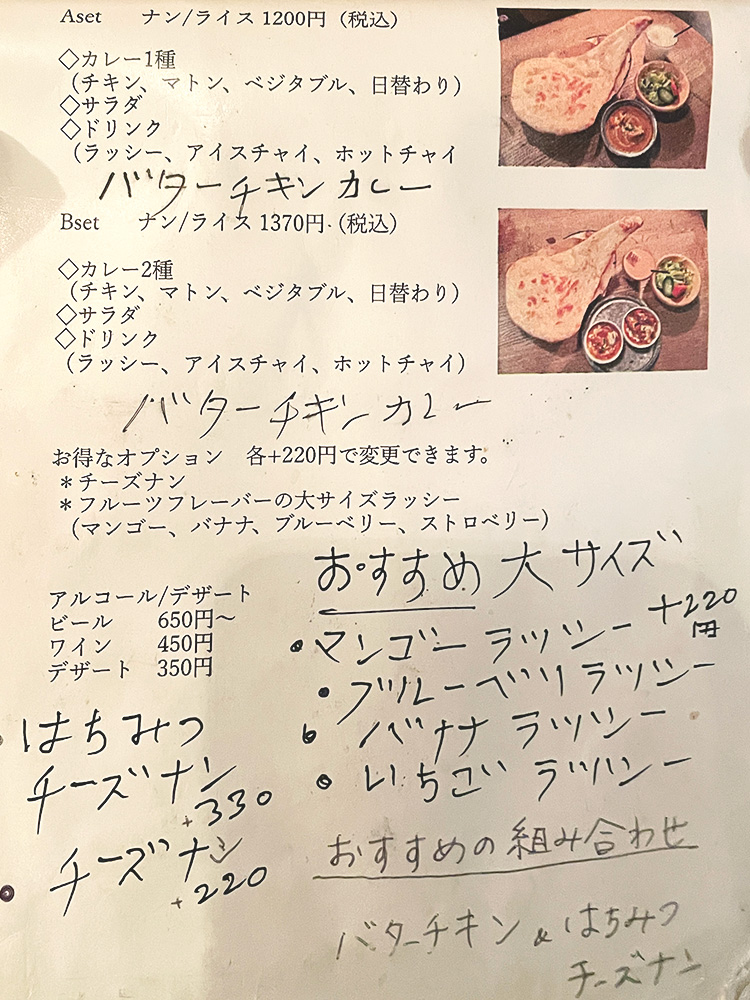 Aset ナン/ライス 1200円（税込）
◇カレー1種
（チキン、マトン、ベジタブル、日替わり）
◇サラダ
◇ドリンク
（ラッシー、アイスチャイ、ホットチャイ
バターチキンカレー
Bset ナン/ライス 1370円（税込）
◇カレー2種
（チキン、マトン、ベジタブル、日替わり）
◇サラダ
◇ドリンク
（ラッシー、アイスチャイ、ホットチャイ）
バターチキンカレー
お得なオプション 各+220円で変更できます。
＊チーズナン
＊フルーツフレーバーの大サイズラッシー
（マンゴー、バナナ、ブルーベリー、ストロベリー）
アルコール/デザート
ビール 650円〜
ワイン 450円
デザート 350円
はちみつ
チーズナン
+330
チーズナン
+220
おすすめ 大サイズ
・マンゴーラッシー +220円
・ブルーベリラッシー
・バナナラッシー
・いちごラッシー
おすすめの組み合わせ
バターチキン & はちみつ
チーズナン